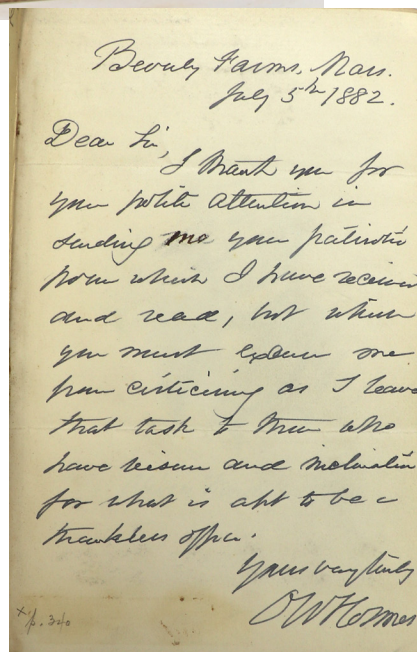 Beverly Farms, Mass.
July 5th 1882.
Dear Sir,
I thank you for
your polite attention in
sending me your patriotic
poem which I have received
and read, but which
you must excuse me
from criticising as I leave
that task to those who
have leisure and inclination
for what is apt to be a
thankless office.
Yours very truly
O W Holmes
x p. 340